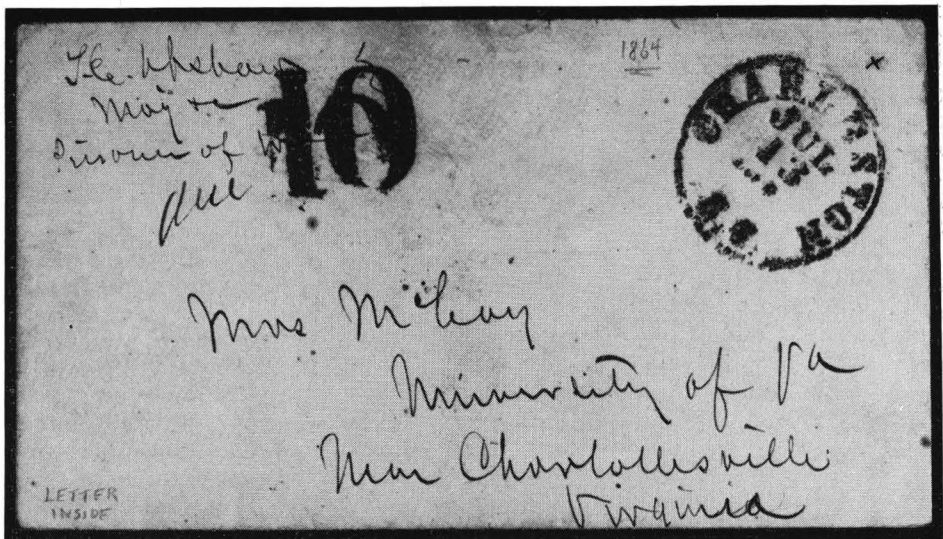 Maj
Prisoner of
due 10
1864
x
CHARLESTON
JUL
13
Mrs McCoy
University of Va
Near Charlottesville
Virginia
LETTER
INSIDE